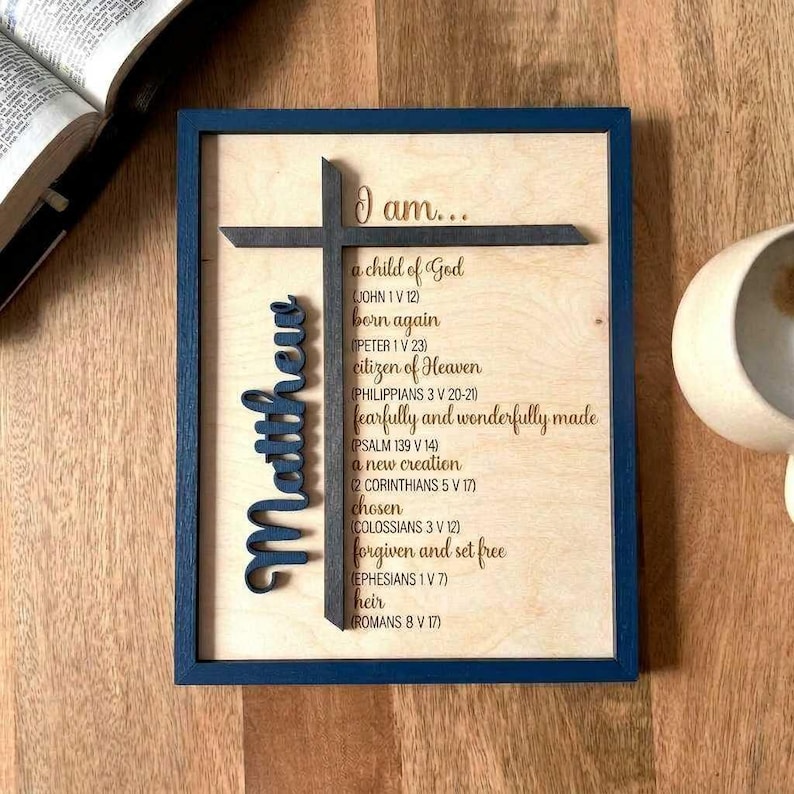 I am...
a child of God
(JOHN 1 V 12)
born again
(1PETER 1 V 23)
citizen of Heaven
(PHILIPPIANS 3 V 20-21)
fearfully and wonderfully made
(PSALM 139 V 14)
a new creation
(2 CORINTHIANS 5 V 17)
chosen
(COLOSSIANS 3 V 12)
forgiven and set free
(EPHESIANS 1 V 7)
heir
(ROMANS 8 V 17)
Matthew